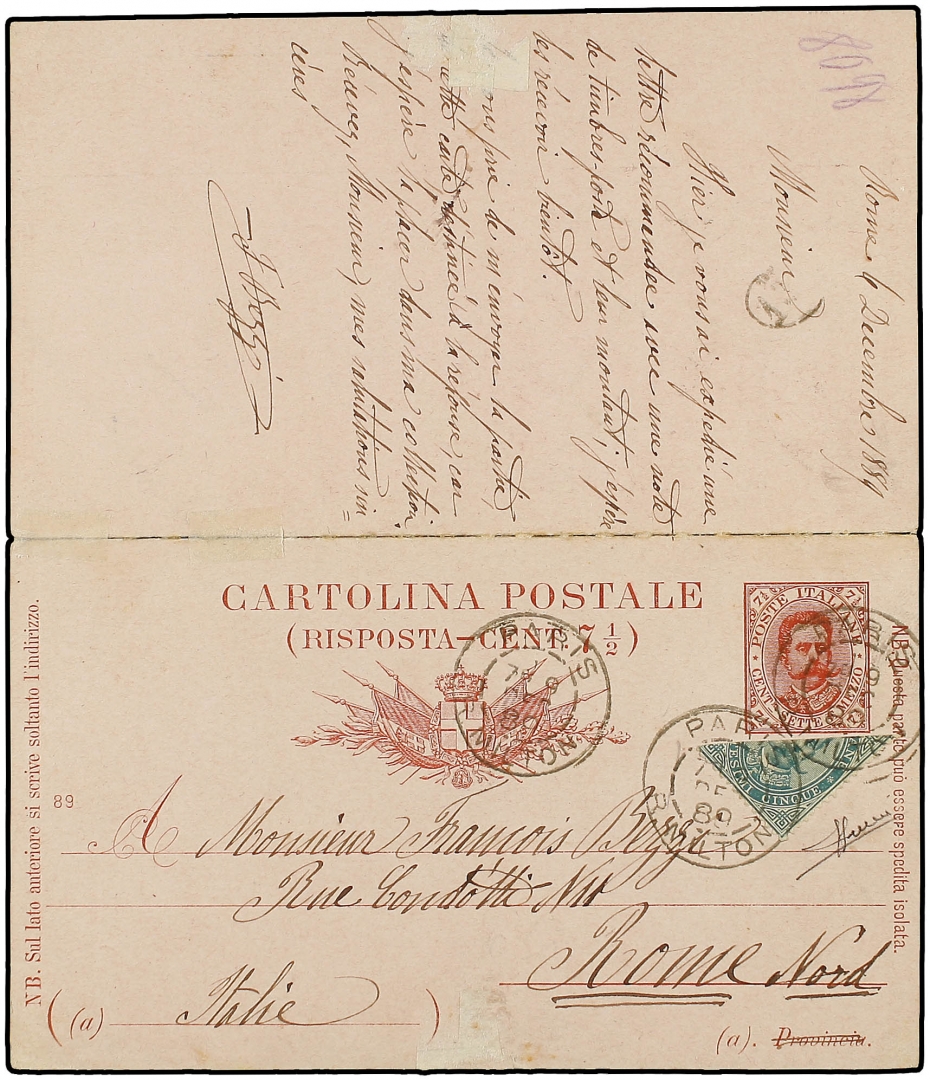 8098
Rome 4 Decembre 1889
Monsieur
Hier je vous ai expedié une
lettre récommandée avec une note
de timbres poste et leur montant, j'espère
les recevoir bientôt.
Je vous prie de m'envoyer la partie
de cette carte destinée à la réponse, car
j'espère la placer dans ma collection.
Recevez, Monsieur, mes salutations sin=
cères
CARTOLINA POSTALE
(RISPOSTA-CENT. 7 1/2)
7½ 7½
POSTE ITALIANE
CENT. SETTE E MEZZO
PARIS
7 DE 89
R. MILTON
PARIS
DE
89
R. MILTON
CINQUE
89
A Monsieur François Bozzi
Rue Condotti
Rome Nord
(a) Italie
(a). Provincia.
NB. Sul lato anteriore si scrive soltanto l'indirizzo.
NB. Questa parte può essere spedita isolata.